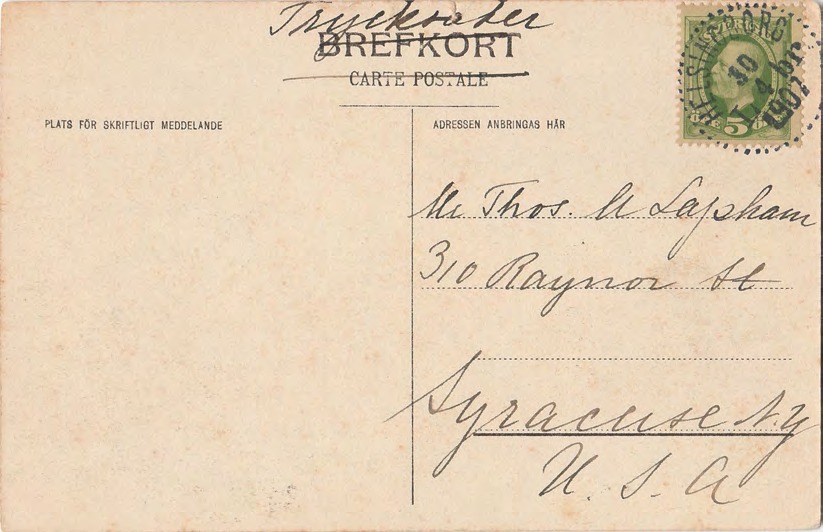 Trycksaker
BREFKORT
CARTE POSTALE
PLATS FÖR SKRIFTLIGT MEDDELANDE
ADRESSEN ANBRINGAS HÄR
SVERIGE
5
HELSINGBORG
10
4
1907
Mr Thos. W Lapham
310 Raynor St
Syracuse N.Y
U. S. A